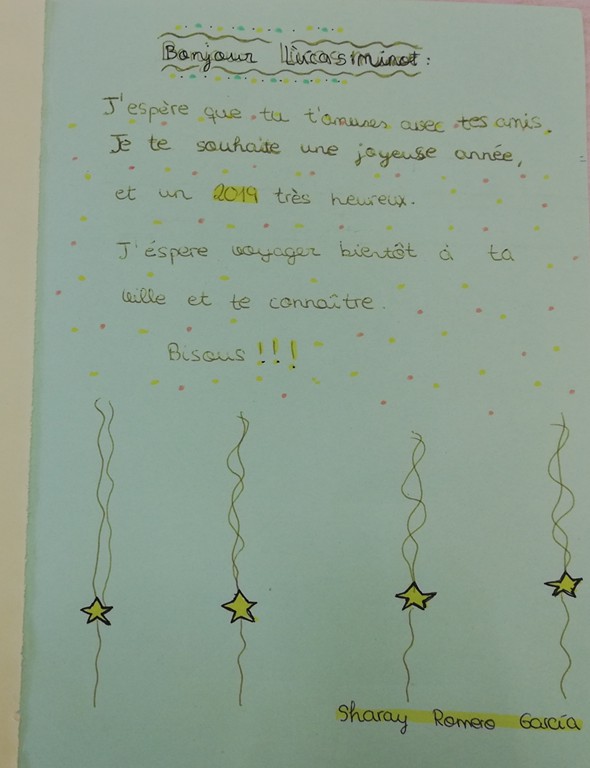 Bonjour Lucassiminot:
J'espère que tu t'amuses avec tes amis.
Je te souhaite une joyeuse année,
et un 2019 très heureux.
J'éspere voyager bientôt à ta
ville et te connaître.
Bisous !!!
Sharay Romero García